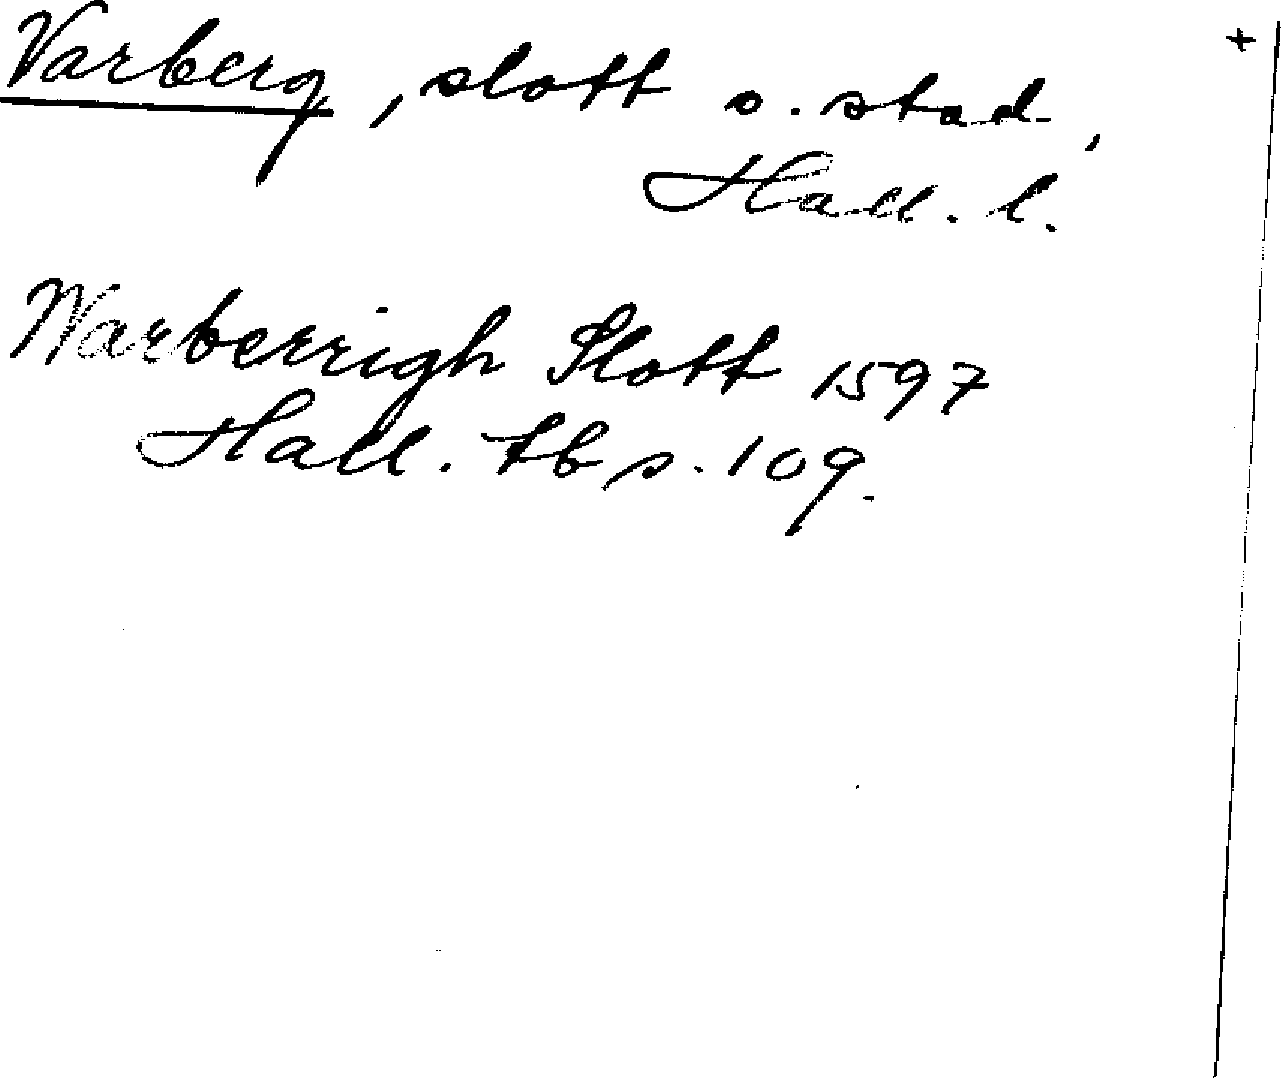 Varberg, slott o. stad, +
Hall. l.
Warberrigh Slott 1597
Hall. tb s. 109.